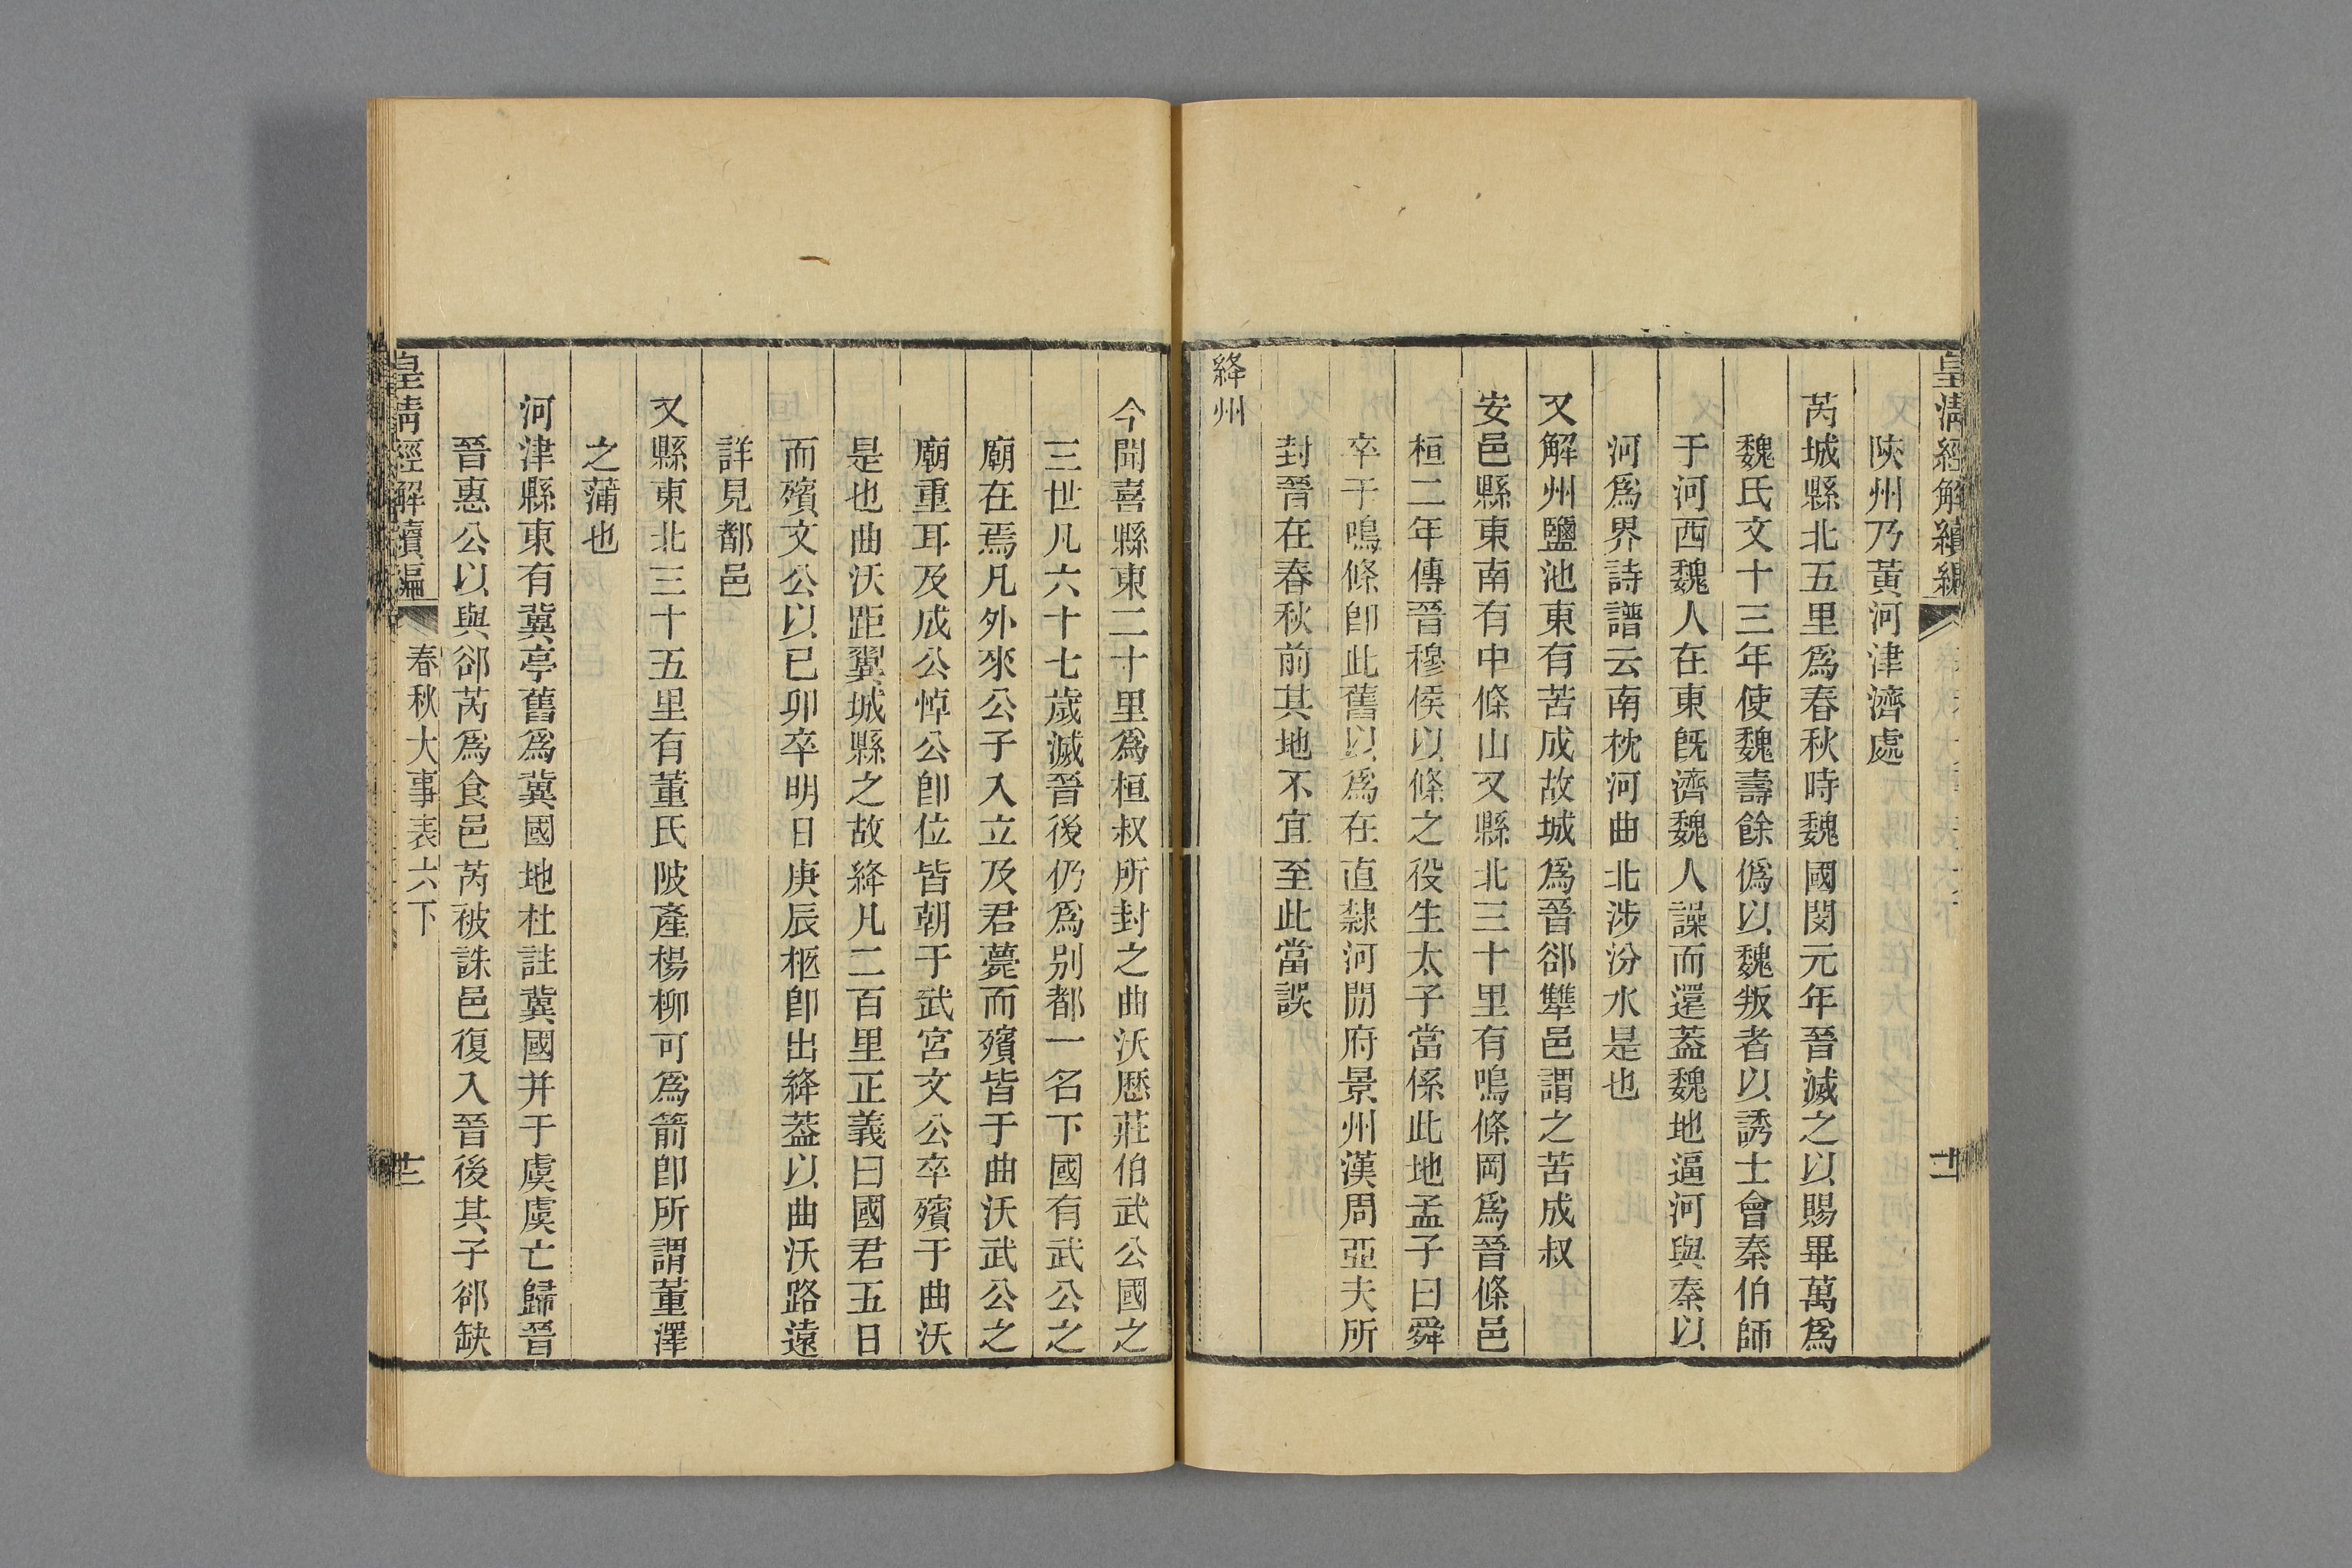 皇清經解續編
陝州乃黃河津濟處
芮城縣北五里爲春秋時魏國閔元年晉滅之以賜畢萬爲
魏氏文十三年使魏壽餘僞以魏叛者以誘士會秦伯師
于河西魏人在東旣濟魏人譟而還葢魏地逼河與秦以
河爲界詩譜云南枕河曲北涉汾水是也
又解州鹽池東有苦成故城爲晉郤犨邑謂之苦成叔
安邑縣東南有中條山又縣北三十里有鳴條岡爲晉條邑
桓二年傳晉穆侯以條之役生太子當係此地孟子曰舜
卒于鳴條卽此舊以爲在直隸河閒府景州漢周亞夫所
封晉在春秋前其地不宜至此當誤
絳州
今聞喜縣東二十里爲桓叔所封之曲沃歷莊伯武公國之
三世凡六十七歲滅晉後仍爲别都一名下國有武公之
廟在焉凡外來公子入立及君薨而殯皆于曲沃武公之
廟重耳及成公悼公卽位皆朝于武宮文公卒殯于曲沃
是也曲沃距翼城縣之故絳凡二百里正義曰國君五日
而殯文公以已卯卒明日庚辰柩卽出絳葢以曲沃路遠
詳見都邑
又縣東北三十五里有董氏陂產楊柳可爲箭卽所謂董澤
之蒲也
河津縣東有冀亭舊爲冀國地杜註冀國并于虞虞亡歸晉
晉惠公以與郤芮爲食邑芮被誅邑復入晉後其子郤缺
皇清經解續編 春秋大事表六下